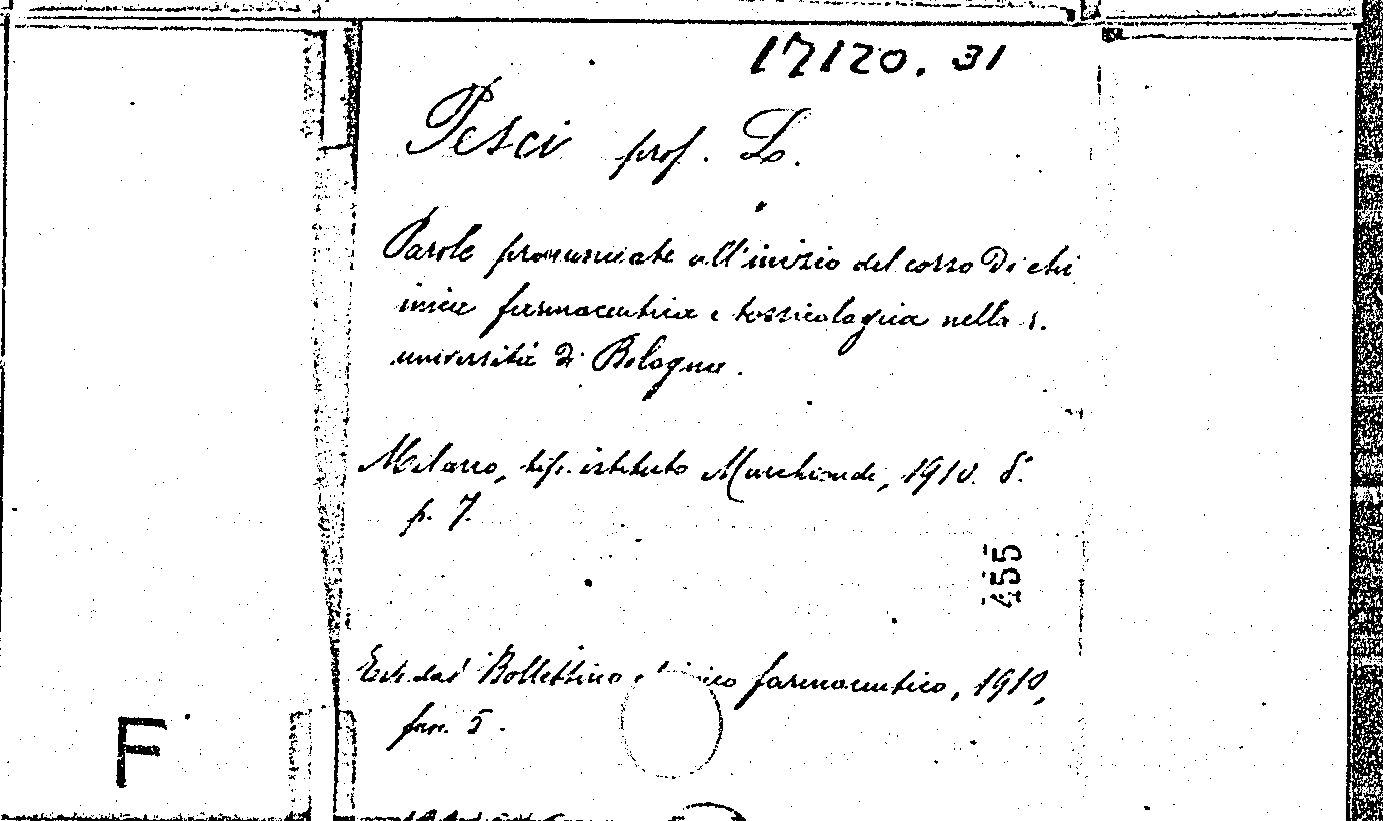 17120.31
Pesci prof. L.
Parole pronunciate all'inizio del corso di chi
mica farmaceutica e tossicologica nella r.
università di Bologna.
Milano, tip. istituto Marchiondi, 1910. 8°
p. 7.
455
Estr. dal Bollettino farmaceutico, 1910,
fasc. 5.
F